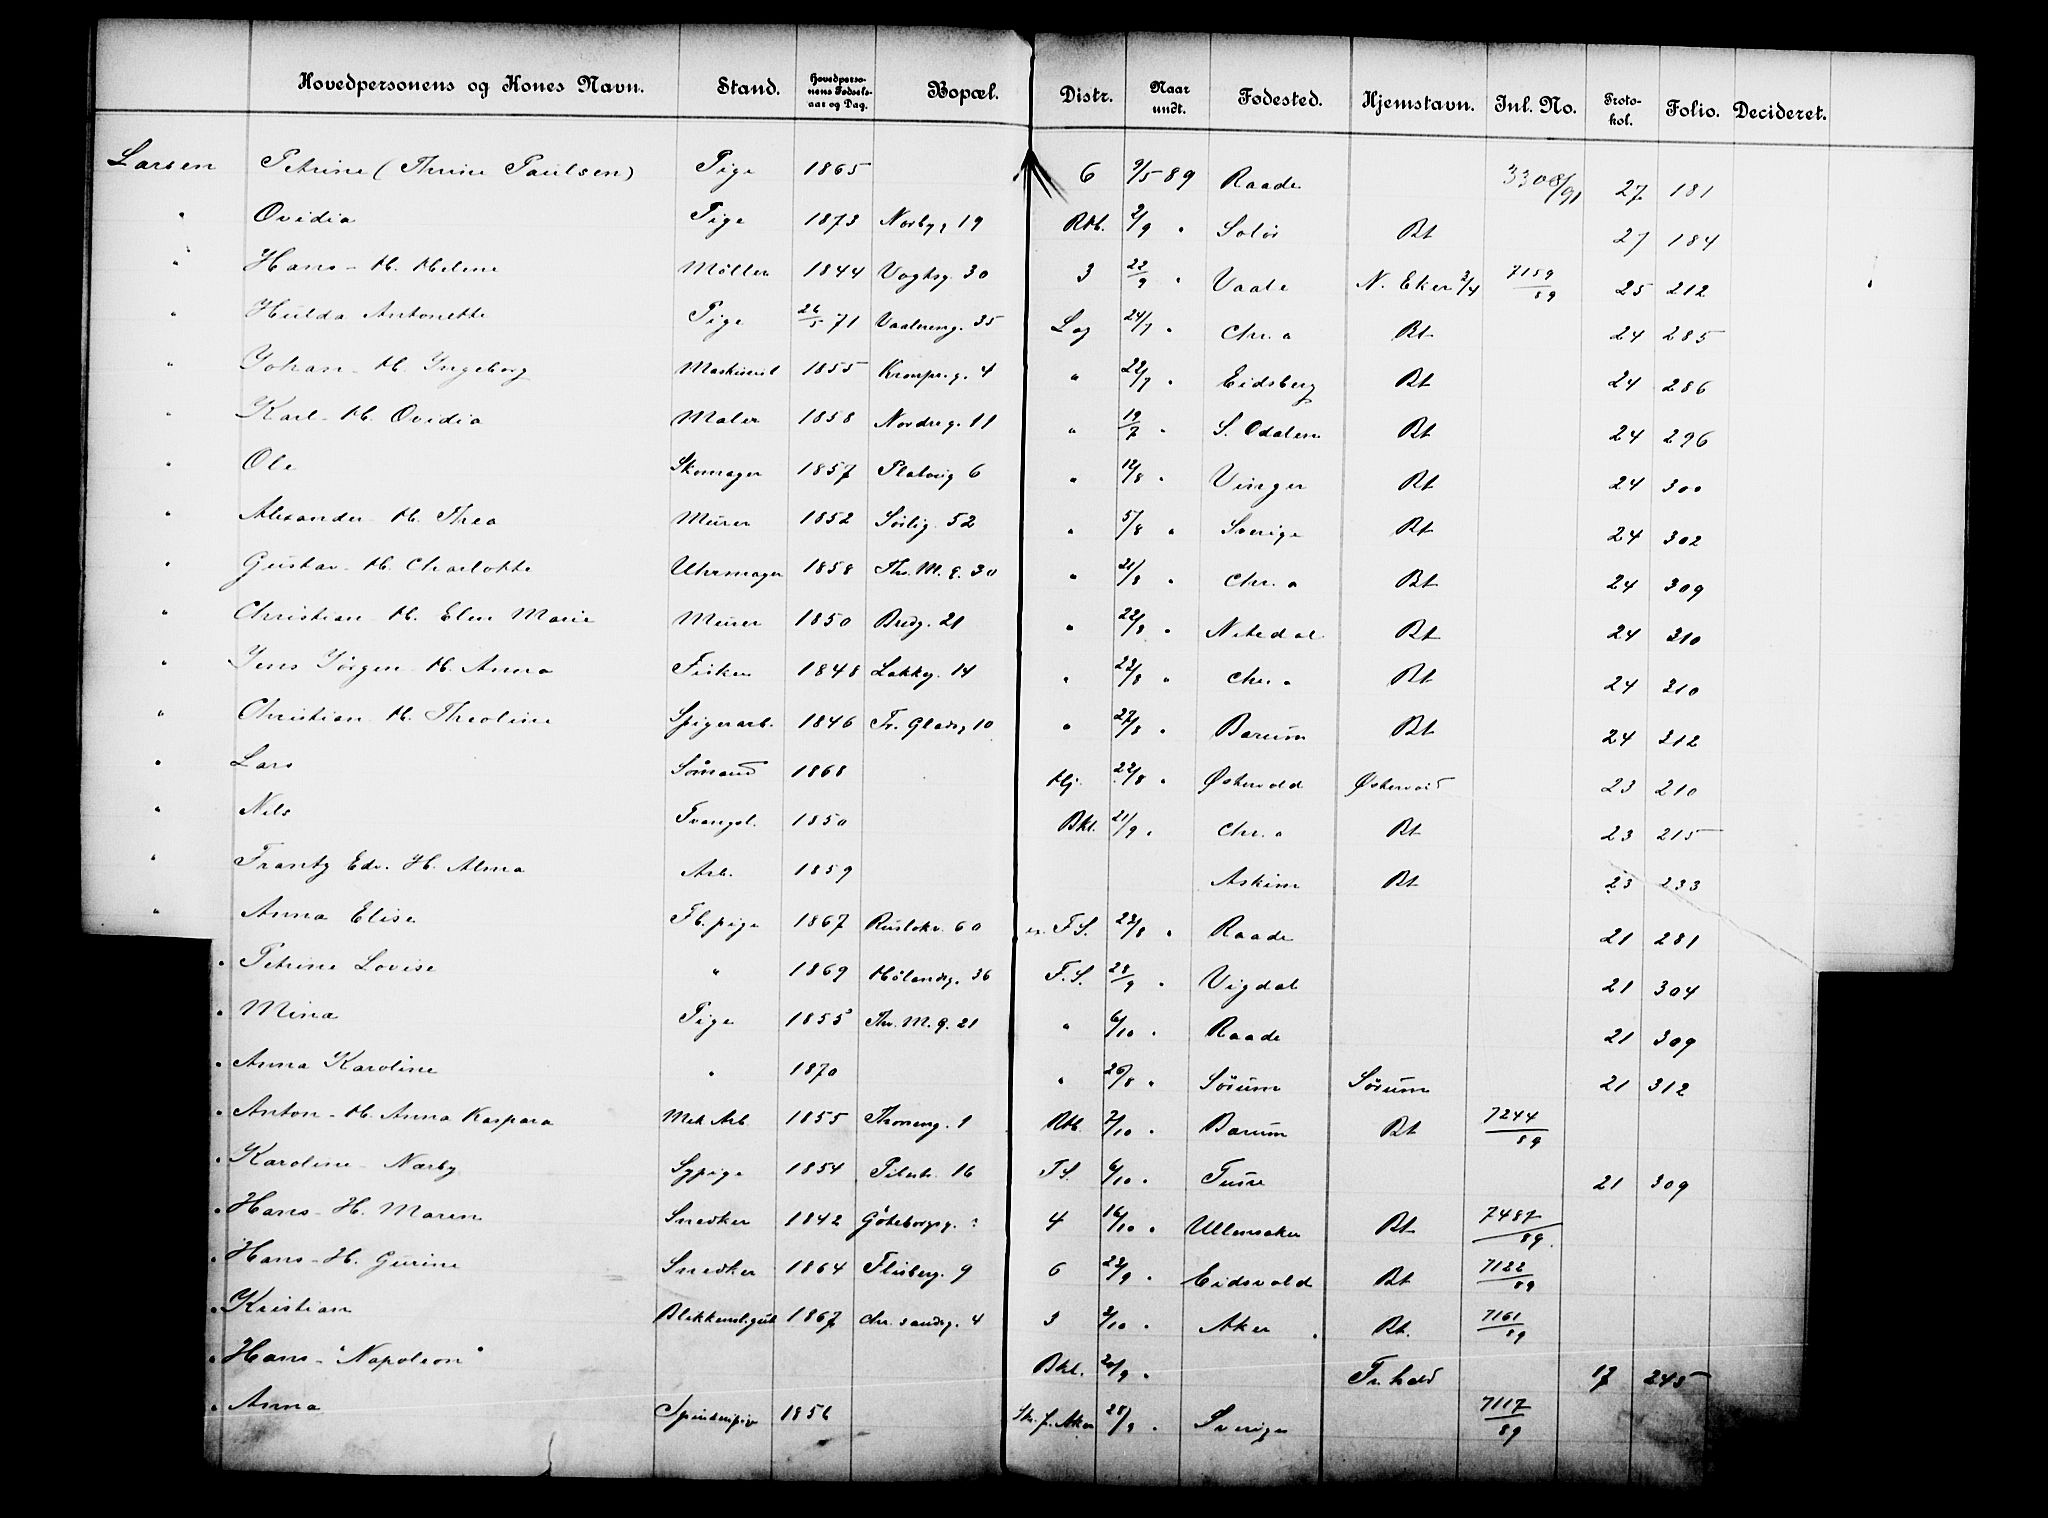 Hovedpersonens og Kones Navn. Stand. Hovedpersonens Fødselsaar og Dag. Bopæl. Distr. Naar undt. Fødested. Hjemstavn. Inl. No. Protokol. Folio. Decideret.
Larsen Petrine (Thrine Paulsen) Pige 1865 6 9/5 89 Raade 3308/91 27 181
" Ovidia Pige 1873 Norbyg 19 Rth. 2/9 " Solør Bt 27 184
" Hans - H. Helene Møller 1844 Vogtsg. 30 3 22/9 " Vaale N. Eker 3/4 7159/89 25 212
" Hulda Antonette Pige 26/5 71 Vaalereng. 35 Log 24/7 " Chr. a Bt 24 285
" Johan - H. Ingeborg Maskinist 1855 Kronpr.g. 4 " 22/7 " Eidsberg Bt 24 286
" Karl - H. Ovidia Maler 1858 Nordreg. 11 " 19/7 " S. Odalen Bt 24 296
" Ole Skomager 1857 Platovg 6 " 12/8 " Vinger Bt 24 300
" Alexander - H. Thea Murer 1852 Sørlig. 52 " 5/8 " Sverige Bt 24 302
" Gustav - H. Charlotte Uhrmager 1858 Thv. M. g. 30 " 21/8 " Chr. a Bt 24 309
" Christian - H. Elen Marie Murer 1850 Bredg. 21 " 22/8 " Nitedal Bt 24 310
" Jens Jørgen - H. Anna Fisker 1848 Lakkeg. 14 " 22/8 " Chr. a Bt 24 310
" Christian - H. Theoline Spigerarb. 1846 Fr. Gladsg 10 " 27/8 " Bærum Bt 24 312
" Lars Sømand 1868 Hj. 22/8 " Østervold Østervold 23 210
" Nils Tvangsl. 1850 Bkl. 21/9 " Chr. a Bt 23 215
" Frantz Edv. H. Alma Arb. 1859 Askim Bt 23 233
" Anna Elise Fb. pige 1867 Ruseløkv. 60 F.S. 23/8 " Raade 21 281
" Petrine Lovise " 1869 Hølandsg. 36 F.S. 28/9 " Vigdal 21 304
" Mina Pige 1855 Thv. M. g. 21 " 6/10 " Raade 21 309
" Anna Karoline " 1870 " 26/8 " Sørum Sørum 21 312
" Anton - H. Anna Kaspara Mek Arb 1855 Throneng. 1 Rth. 7/10 " Bærum Bt 7244/89
" Karoline - Nærby Sypige 1854 Pilestr. 16 F.S. 6/10 " Fuire 21 309
" Hans - H. Maren Snedker 1842 Göteborgsg. ? 4 16/10 " Ullensaker Bt 7487/89
" Hans - H. Gurine Snedker 1864 Flisberg. 9 6 23/9 " Eidsvold Bt 7122/89
" Kristian Blikkensl.gut 1867 Chr. sandsg. 4 3 2/10 " Aker Bt. 7161/89
" Hans - "Napoleon" Bkl. 20/9 " Fr. hald 17 245
" Anna Spindepige 1856 Str. f. Aker 28/9 " Sverige 7117/89